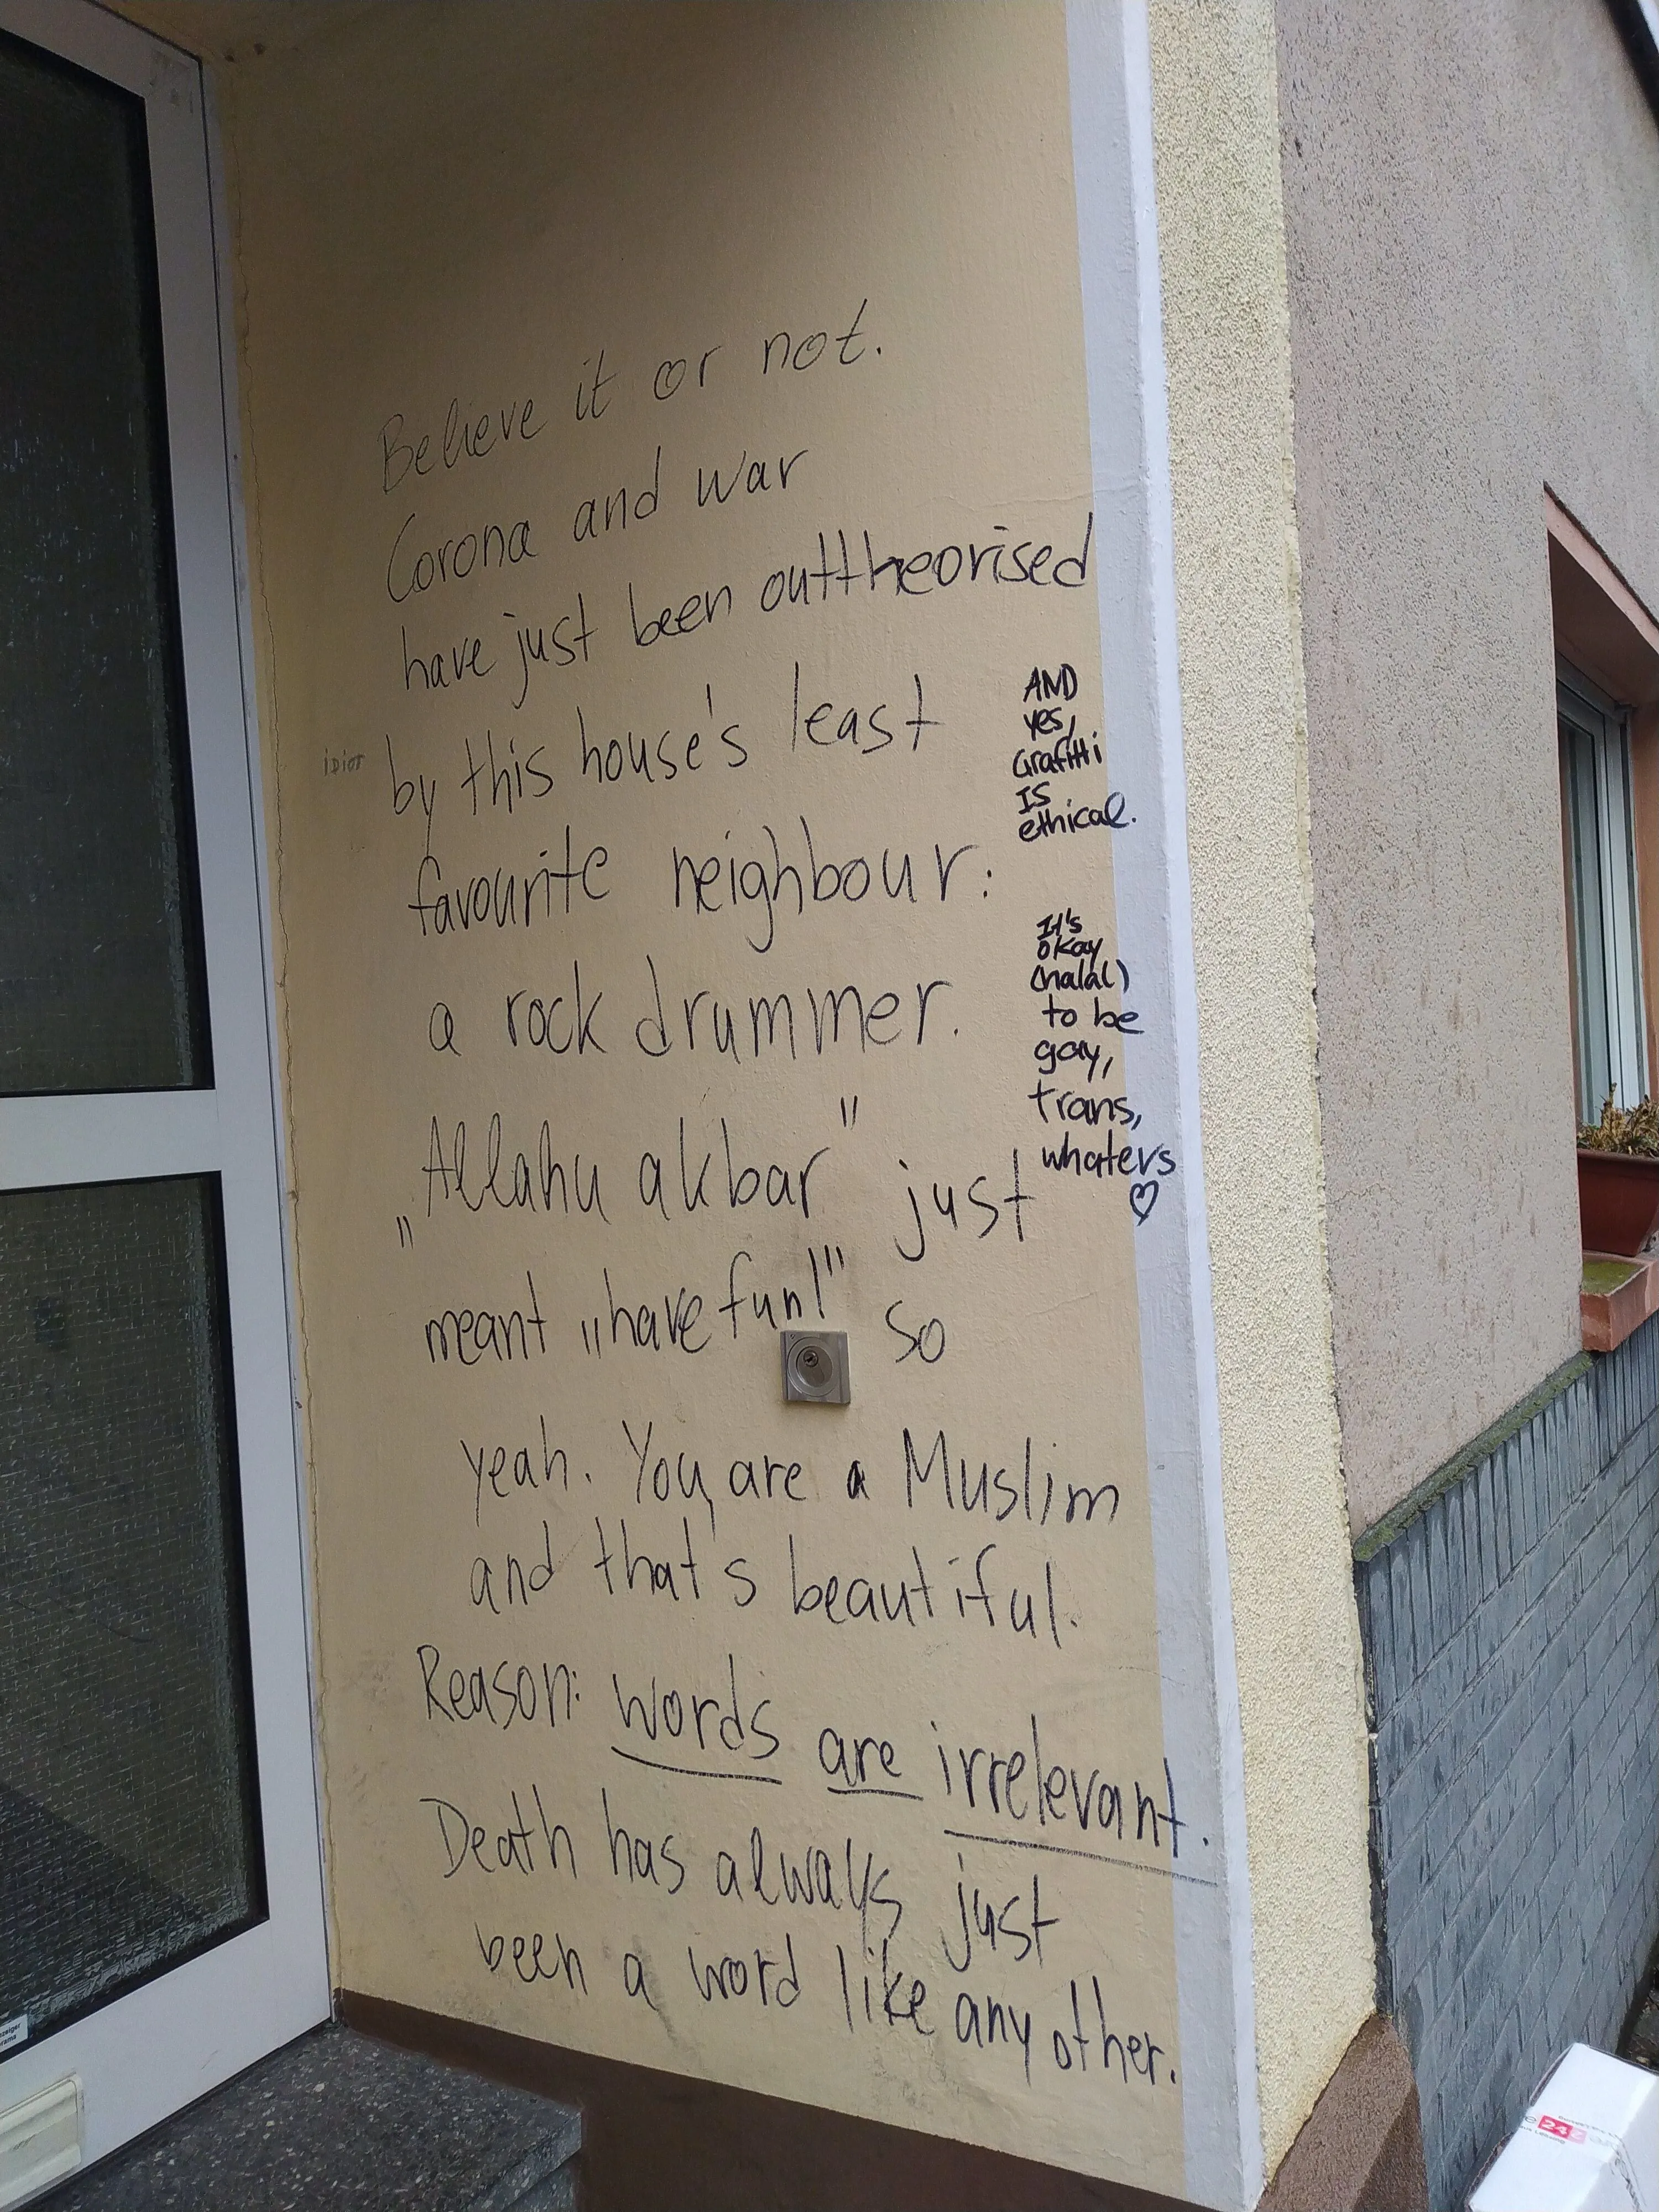 Believe it or not.
Corona and war
have just been outtheorised
by this house's least
favourite neighbour:
a rock drummer.
„Allahu akbar" just
meant „have fun!" so
yeah. You are a Muslim
and that's beautiful.
Reason: words are irrelevant.
Death has always just
been a word like any other.
AND
yes,
Grafitti
IS
ethical.
It's
okay
(halal)
to be
gay,
trans,
whatevs
♡
iDiot
24